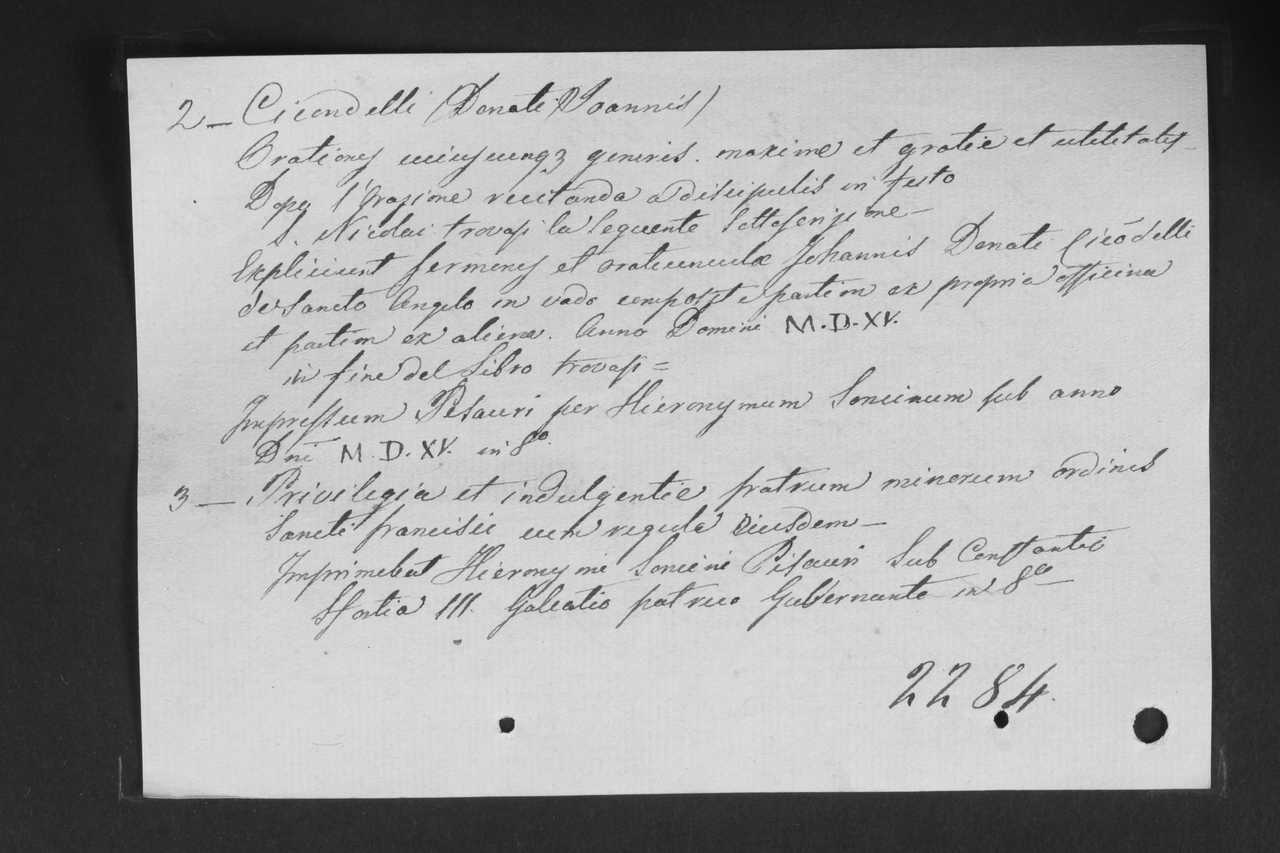 2 — Cicondelli (Donati Joannis)
Orationes cuiuscunqz generis. maxime et gratie et utilitatis —
Dopo l'Orazione recitanda a discipulis in festo
S. Nicolai trovasi la seguente sottoscrizione —
Expliciunt sermones et oratiunculæ Johannis Donati Cicōdelli
de Sancto Angelo in vado composite partim ex propria officina
et partim ex aliena. Anno Domini M.D.XV.
in fine del Libro trovasi =
Impressum Pisauri per Hieronymum Soncinum sub anno
Dni M.D.XV. in 8º.
3 — Privilegia et indulgentie fratrum minorum ordinis
Sancti francisci cum regula eiusdem —
Imprimebat Hieronymi Soncini Pisauri Sub Constantio
Sfortia III. Galeatio patruo Gubernante in 8º —
2284.